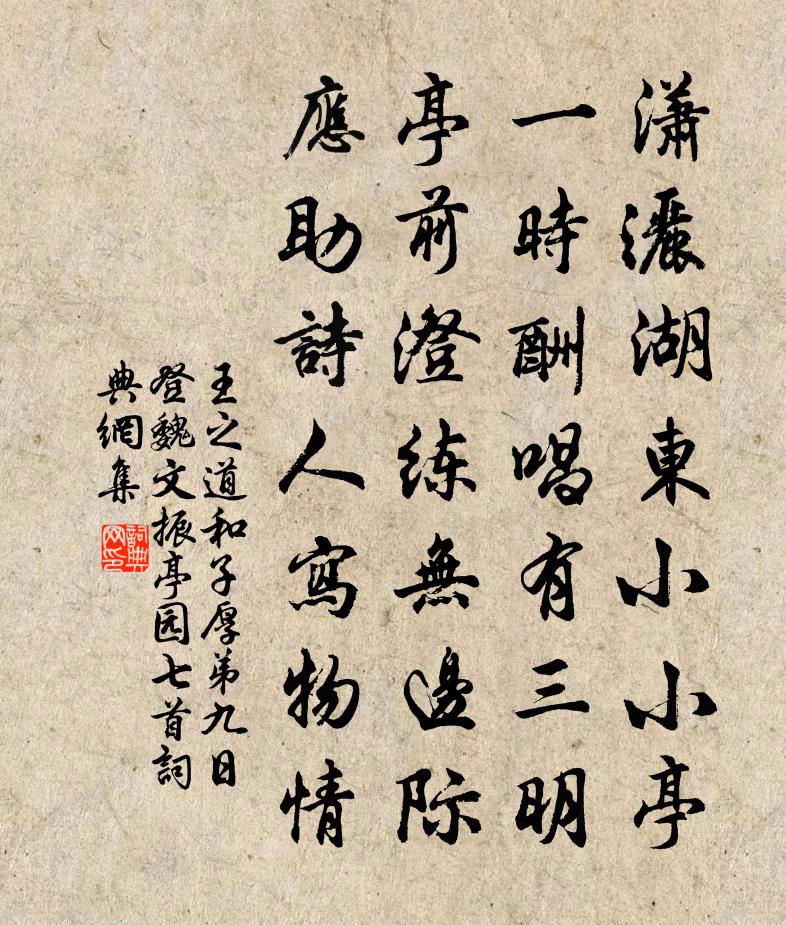 瀟灑湖東小小亭
一時酬唱有三明
亭前澄练無邊际
應助詩人寫物情
王之道和子厚弟九日
登魏文振亭园七首詞
典網集
詞典网印